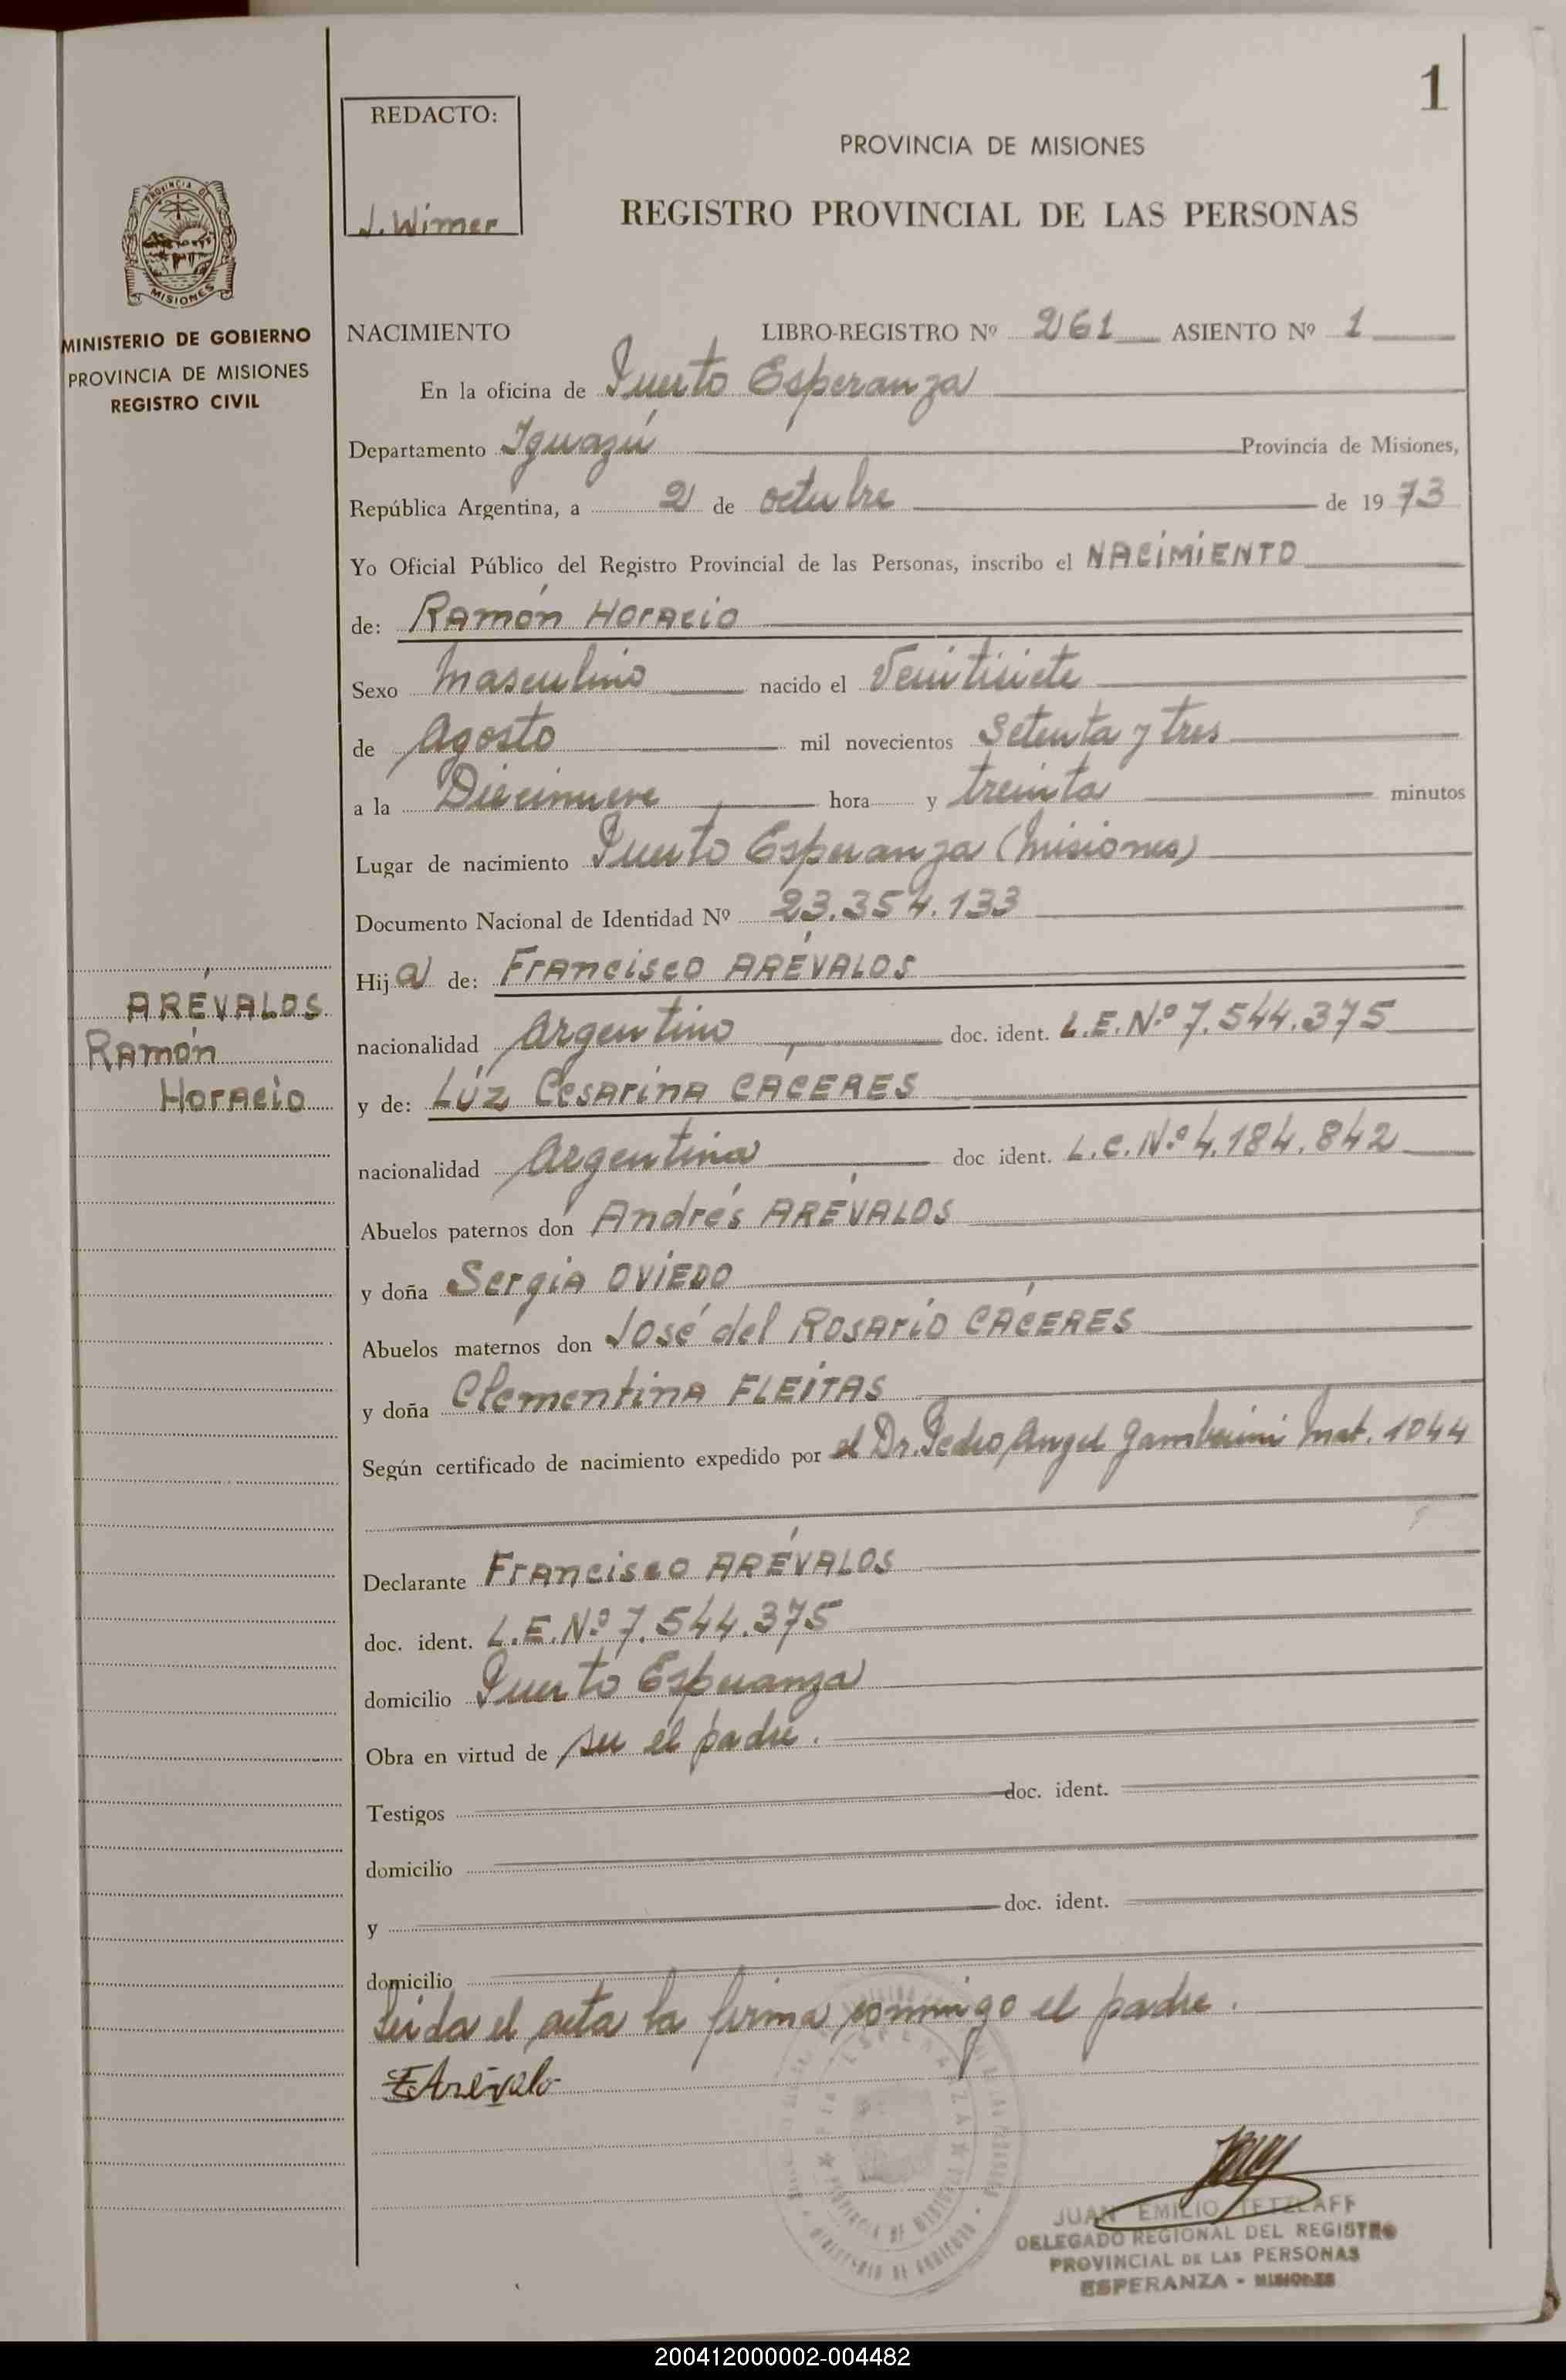 1
REDACTO:
J. Wimer
PROVINCIA DE MISIONES
REGISTRO PROVINCIAL DE LAS PERSONAS
PROVINCIA DE
MISIONES
MINISTERIO DE GOBIERNO
PROVINCIA DE MISIONES
REGISTRO CIVIL
NACIMIENTO LIBRO-REGISTRO Nº 261 ASIENTO Nº 1
En la oficina de Puerto Esperanza
Departamento Iguazú Provincia de Misiones,
República Argentina, a 2 de octubre de 1973
Yo Oficial Público del Registro Provincial de las Personas, inscribo el NACIMIENTO
de: Ramón Horacio
Sexo Masculino nacido el Veintisiete
de Agosto mil novecientos Setenta y tres
a la Diecinueve hora y treinta minutos
Lugar de nacimiento Puerto Esperanza (Misiones)
Documento Nacional de Identidad Nº 23.354.133
Hij o de: Francisco ARÉVALOS
nacionalidad Argentino doc. ident. L.E.Nº 7.544.375
y de: Lúz Cesarina CÁCERES
nacionalidad Argentina doc ident. L.C.Nº 4.184.842
Abuelos paternos don Andrés ARÉVALOS
y doña Sergia OVIEDO
Abuelos maternos don José del Rosario CÁCERES
y doña Clementina FLEITAS
Según certificado de nacimiento expedido por el Dr. Pedro Angel Gamberini Mat. 1044
Declarante Francisco ARÉVALOS
doc. ident. L.E.Nº 7.544.375
domicilio Puerto Esperanza
Obra en virtud de ser el padre.
Testigos doc. ident.
domicilio
y doc. ident.
domicilio
Leida el acta la firma conmigo el padre.
F Arévalo
ARÉVALOS
Ramón
Horacio
JUAN EMILIO TETZLAFF
DELEGADO REGIONAL DEL REGISTRO
PROVINCIAL DE LAS PERSONAS
ESPERANZA - MISIONES
200412000002-004482